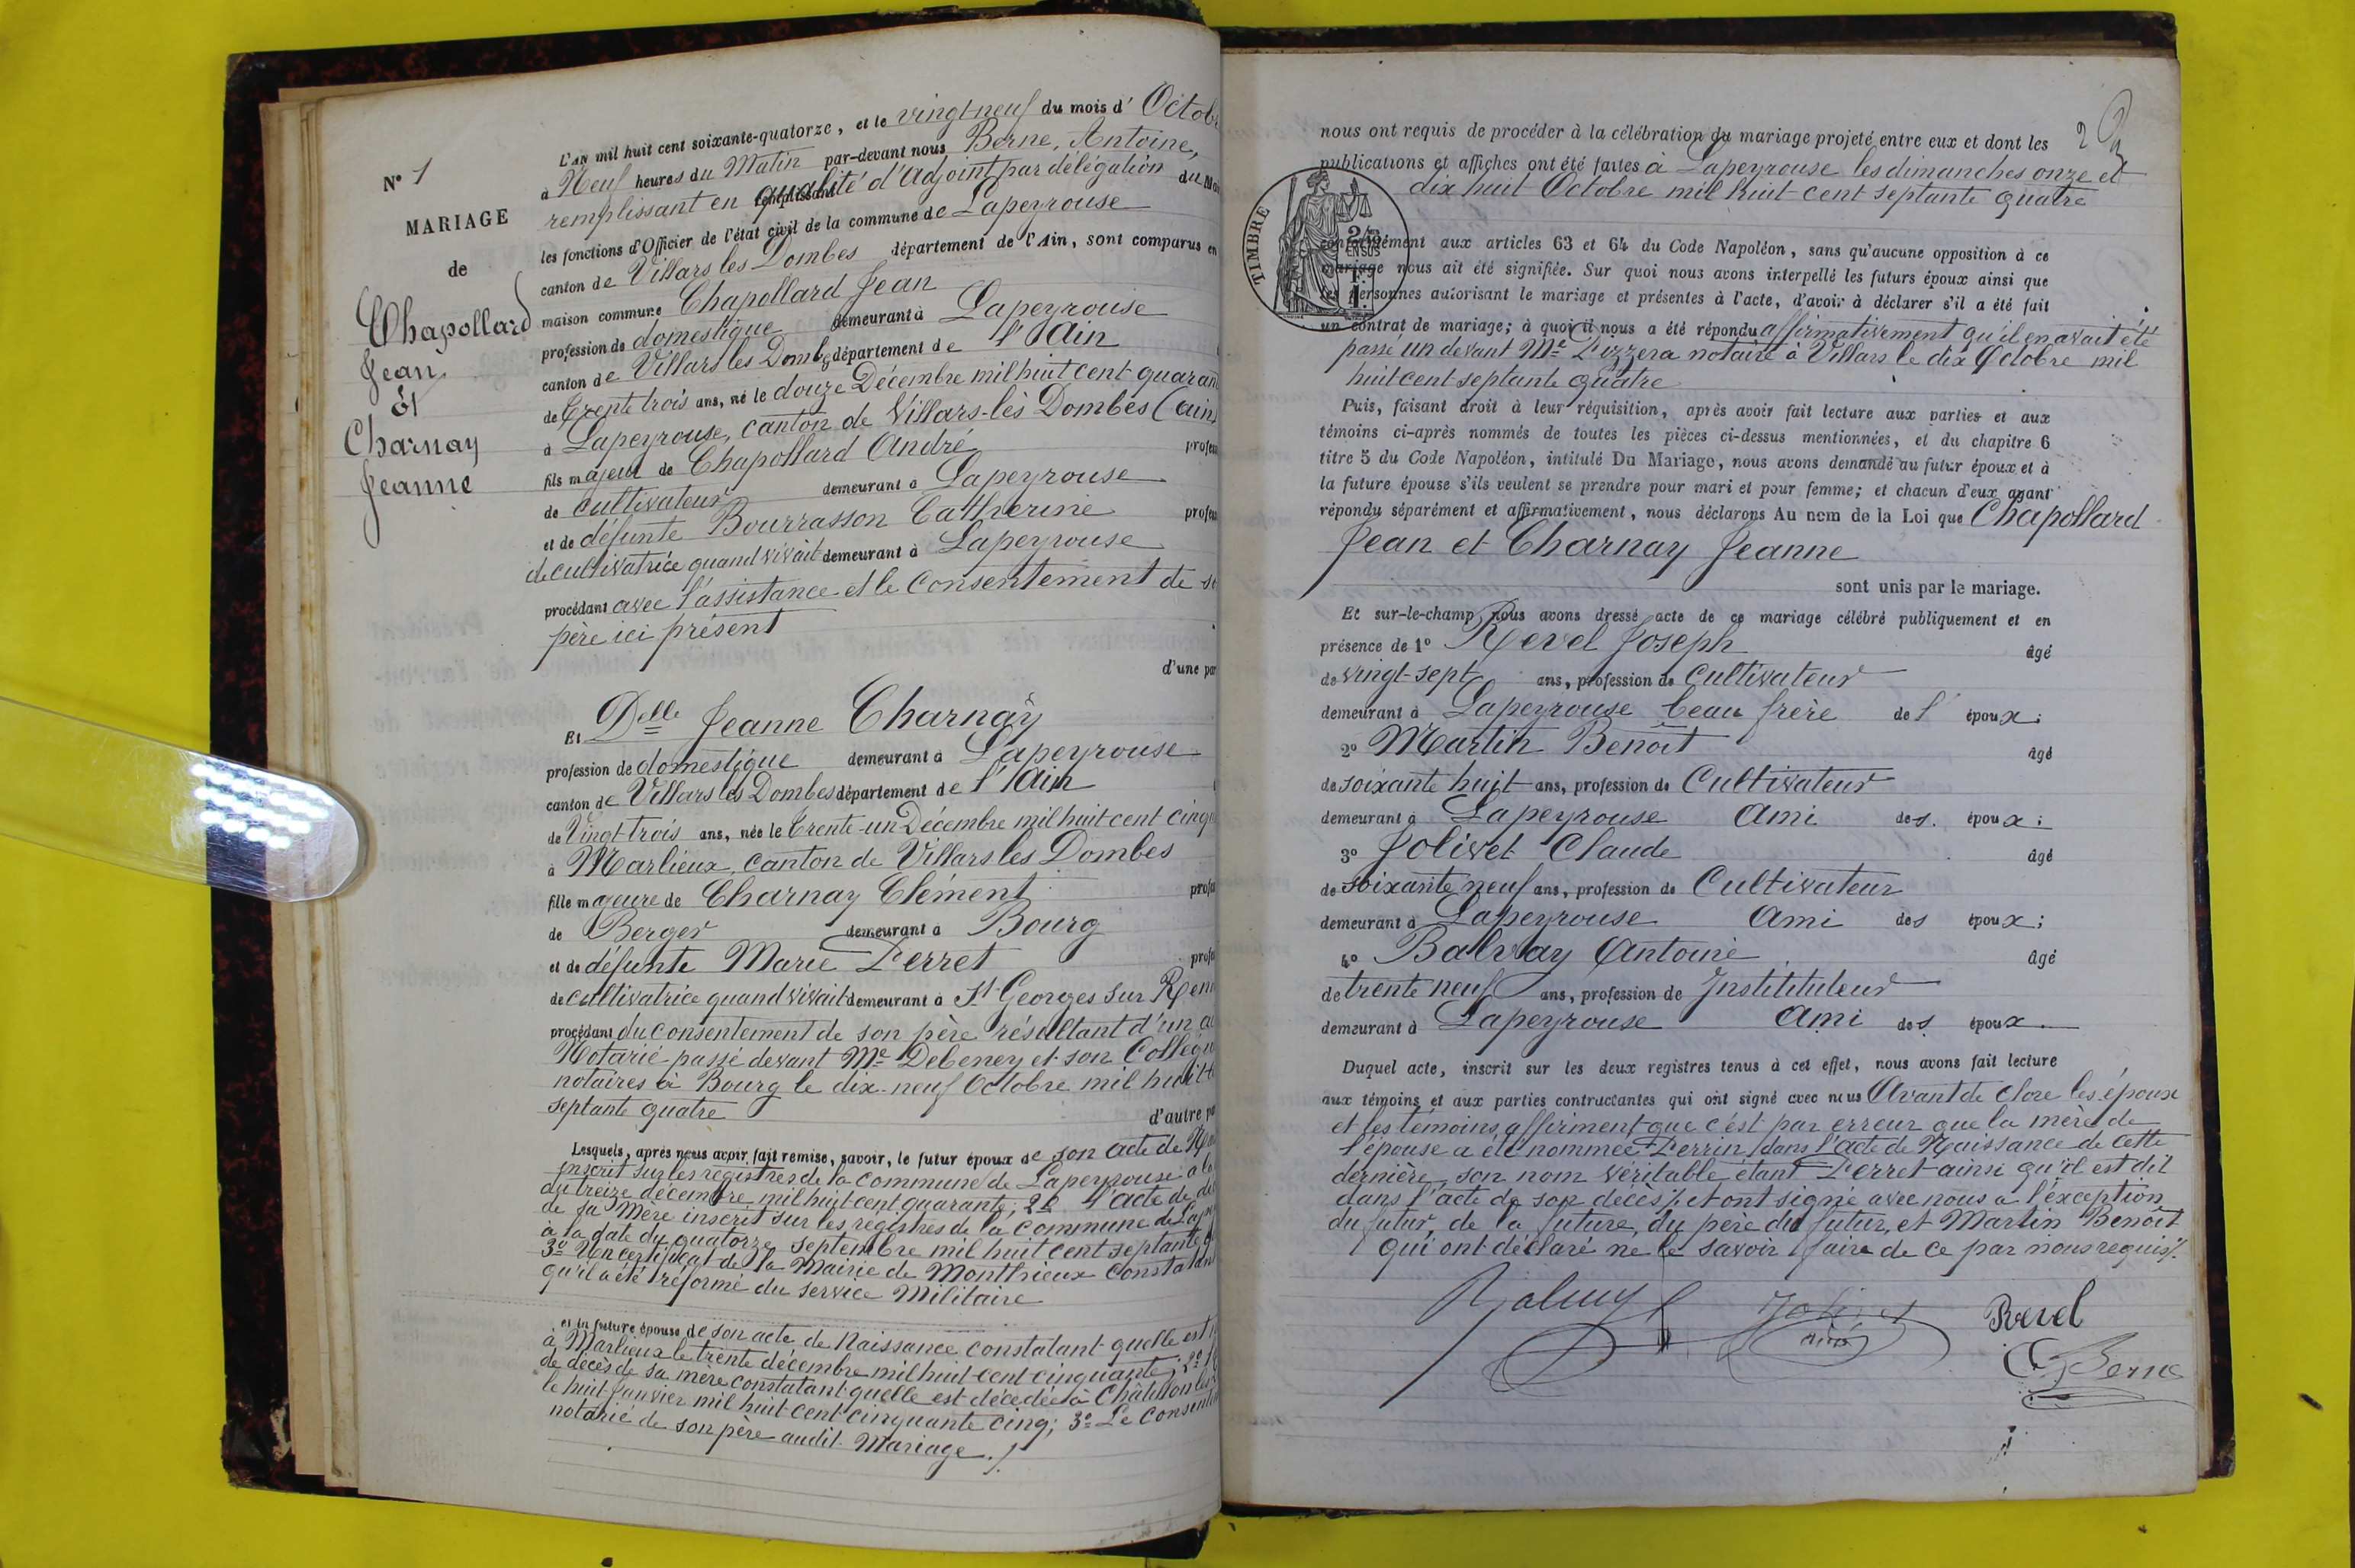 N° 1
MARIAGE
de
Chapollard
Jean
Et
Charnay
Jeanne
L'AN mil huit cent soixante-quatorze, et le vingt-neuf du mois d'Octob
à Neuf heures du Matin par-devant nous Berne, Antoine,
remplissant en qualité d'adjoint par délégation du
les fonctions d'Officier de l'état civil de la commune de Lapeyrouse
canton de Villars les Dombes département de l'Ain, sont comparus en
maison commune Chapollard Jean
profession de domestique demeurant à Lapeyrouse
canton de Villars les Domb département de l'Ain
de trente trois ans, né le douze Décembre mil huit cent quaran
à Lapeyrouse, canton de Villars-lès Dombes (ain
fils majeur de Chapollard André profes
de cultivateur demeurant à Lapeyrouse
et de défunte Bourrasson Catherine profes
de cultivatrice quand vivait demeurant à Lapeyrouse
procédant avec l'assistance et le consentement de s
père ici présent
d'une par
Et Delle Jeanne Charnay
profession de domestique demeurant à Lapeyrouse
canton de Villars les Dombes département de l'Ain
de Vingt-trois ans, née le trente-un Décembre mil huit cent cinq
à Marlieux, canton de Villars les Dombes
fille majeure de Charnay Clément profes
de Berger demeurant à Bourg
et de défunte Marie Perret profes
de cultivatrice quand vivait demeurant à St Georges sur Ren
procédant du consentement de son père résultant d'un a
Notarié passé devant Me Debeney et son Collègu
notaires à Bourg le dix-neuf Octobre mil huit
septante quatre
d'autre pa
Lesquels, après nous avoir fait remise, savoir, le futur époux de son acte de Nai
inscrit sur les registres de la commune de Lapeyrouse à la
du treize décembre mil huit cent quarante; 2° l'acte de dé
de sa Mère inscrit sur les registres de la commune de Lapey
à la date du quatorze septembre mil huit cent septante
3° Un certificat de la Mairie de Monthieux constatant
qu'il a été réformé du service Militaire
et la future épouse de son acte de Naissance constatant quelle est
à Marlieux le trente décembre mil huit cent cinquante; 2° l'
de décès de sa mère constatant quelle est décédée à Châtillon les
le huit Janvier mil huit cent cinquante cinq; 3° Le consent
notarié de son père audit Mariage ./.
2
nous ont requis de procéder à la célébration du mariage projeté entre eux et dont les
publications et affiches ont été faites à Lapeyrouse les dimanches onze et
dix huit Octobre mil huit cent septante quatre
TIMBRE
conformément aux articles 63 et 64 du Code Napoléon, sans qu'aucune opposition à ce
mariage nous ait été signifiée. Sur quoi nous avons interpellé les futurs époux ainsi que
les personnes autorisant le mariage et présentes à l'acte, d'avoir à déclarer s'il a été fait
un contrat de mariage; à quoi il nous a été répondu affirmativement qu'il en avait été
passé un devant Me Pizzera notaire à Villars le dix Octobre mil
huit cent septante quatre
Puis, faisant droit à leur réquisition, après avoir fait lecture aux parties et aux
témoins ci-après nommés de toutes les pièces ci-dessus mentionnées, et du chapitre 6
titre 5 du Code Napoléon, intitulé Du Mariage, nous avons demandé au futur époux et à
la future épouse s'ils veulent se prendre pour mari et pour femme; et chacun d'eux ayant
répondu séparément et affirmativement, nous déclarons Au nom de la Loi que Chapollard
Jean et Charnay Jeanne
sont unis par le mariage.
Et sur-le-champ, nous avons dressé acte de ce mariage célébré publiquement et en
présence de 1° Revel Joseph âgé
de vingt-sept ans, profession de Cultivateur
demeurant à Lapeyrouse beau frère de l'époux;
2° Martin Benoît âgé
de soixante huit ans, profession de Cultivateur
demeurant à Lapeyrouse Ami des époux;
3° Jolivet Claude âgé
de soixante neuf ans, profession de Cultivateur
demeurant à Lapeyrouse Ami des époux;
4° Balvay Antoine âgé
de trente neuf ans, profession de Institituteur
demeurant à Lapeyrouse Ami des époux
Duquel acte, inscrit sur les deux registres tenus à cet effet, nous avons fait lecture
aux témoins et aux parties contractantes qui ont signé avec nous Avant de clore les époux
et les témoins affirment que c'est par erreur que la mère de
l'épouse a été nommée Perrin dans l'acte de Naissance de cette
dernière, son nom véritable étant Perret ainsi qu'il est dit
dans l'acte de son décès ./. et ont signé avec nous à l'exception
du futur, de la future, du père du futur, et Martin Benoît
qui ont déclaré ne le savoir faire de ce par nous requis ./.
Balvay
Jolivet
aîné
Revel
Berne